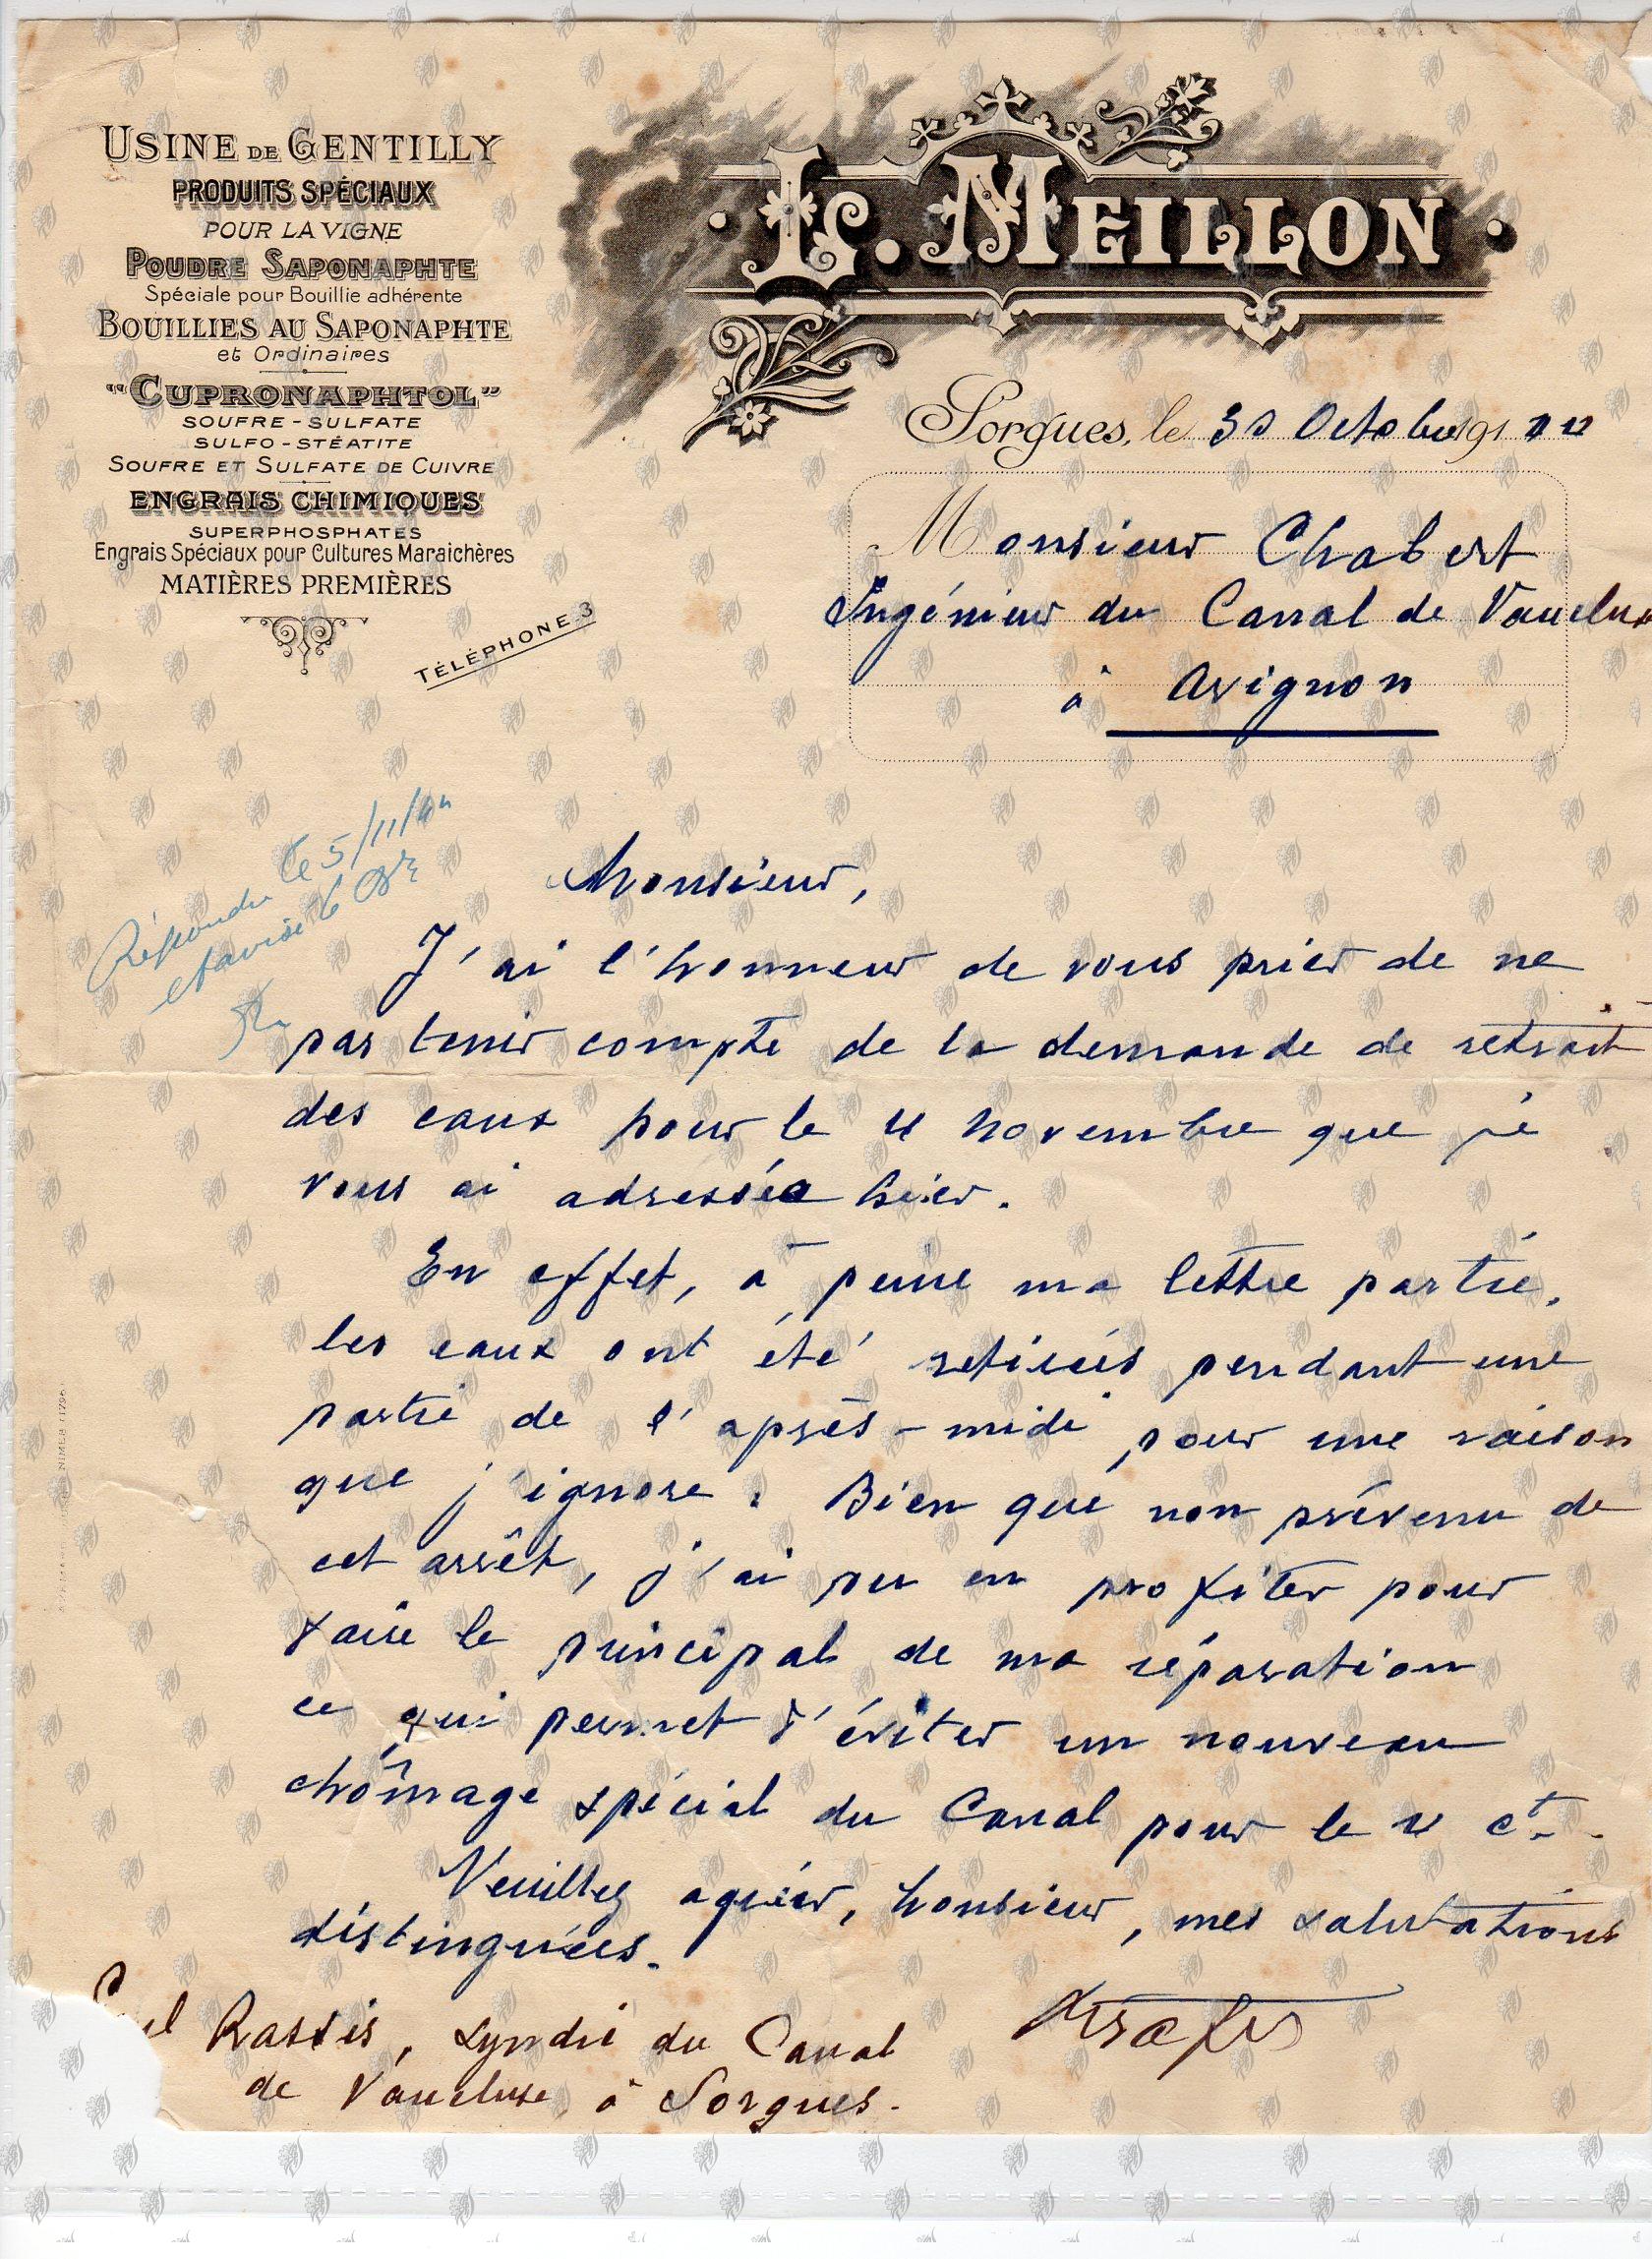 USINE DE GENTILLY
PRODUITS SPÉCIAUX
POUR LA VIGNE
POUDRE SAPONAPHTE
Spéciale pour Bouillie adhérente
BOUILLIES AU SAPONAPHTE
et Ordinaires
"CUPRONAPHTOL"
SOUFRE - SULFATE
SULFO - STÉATITE
SOUFRE ET SULFATE DE CUIVRE
ENGRAIS CHIMIQUES
SUPERPHOSPHATES
Engrais Spéciaux pour Cultures Maraichères
MATIÈRES PREMIÈRES
TÉLÉPHONE 3
L. MEILLON
Sorgues, le 30 Octobre 191
Monsieur Chabert
Ingénieur du Canal de Vaucluse
à Avignon
Répondu le 5/11/
et avisé le
Monsieur,
J'ai l'honneur de vous prier de ne
pas tenir compte de la demande de retrait
des eaux pour le 11 novembre que je
vous ai adressée hier.
En effet, à peine ma lettre partie,
les eaux ont été retirées pendant une
partie de l'après-midi pour une raison
que j'ignore. Bien que non prévenu de
cet arrêt, j'ai pu en profiter pour
faire le principal de ma réparation
ce qui permet d'éviter un nouveau
chômage spécial du Canal pour le 11 ct.
Veuillez agréer, Monsieur, mes salutations
distinguées.
Rassis, syndic du Canal
de Vaucluse à Sorgues.